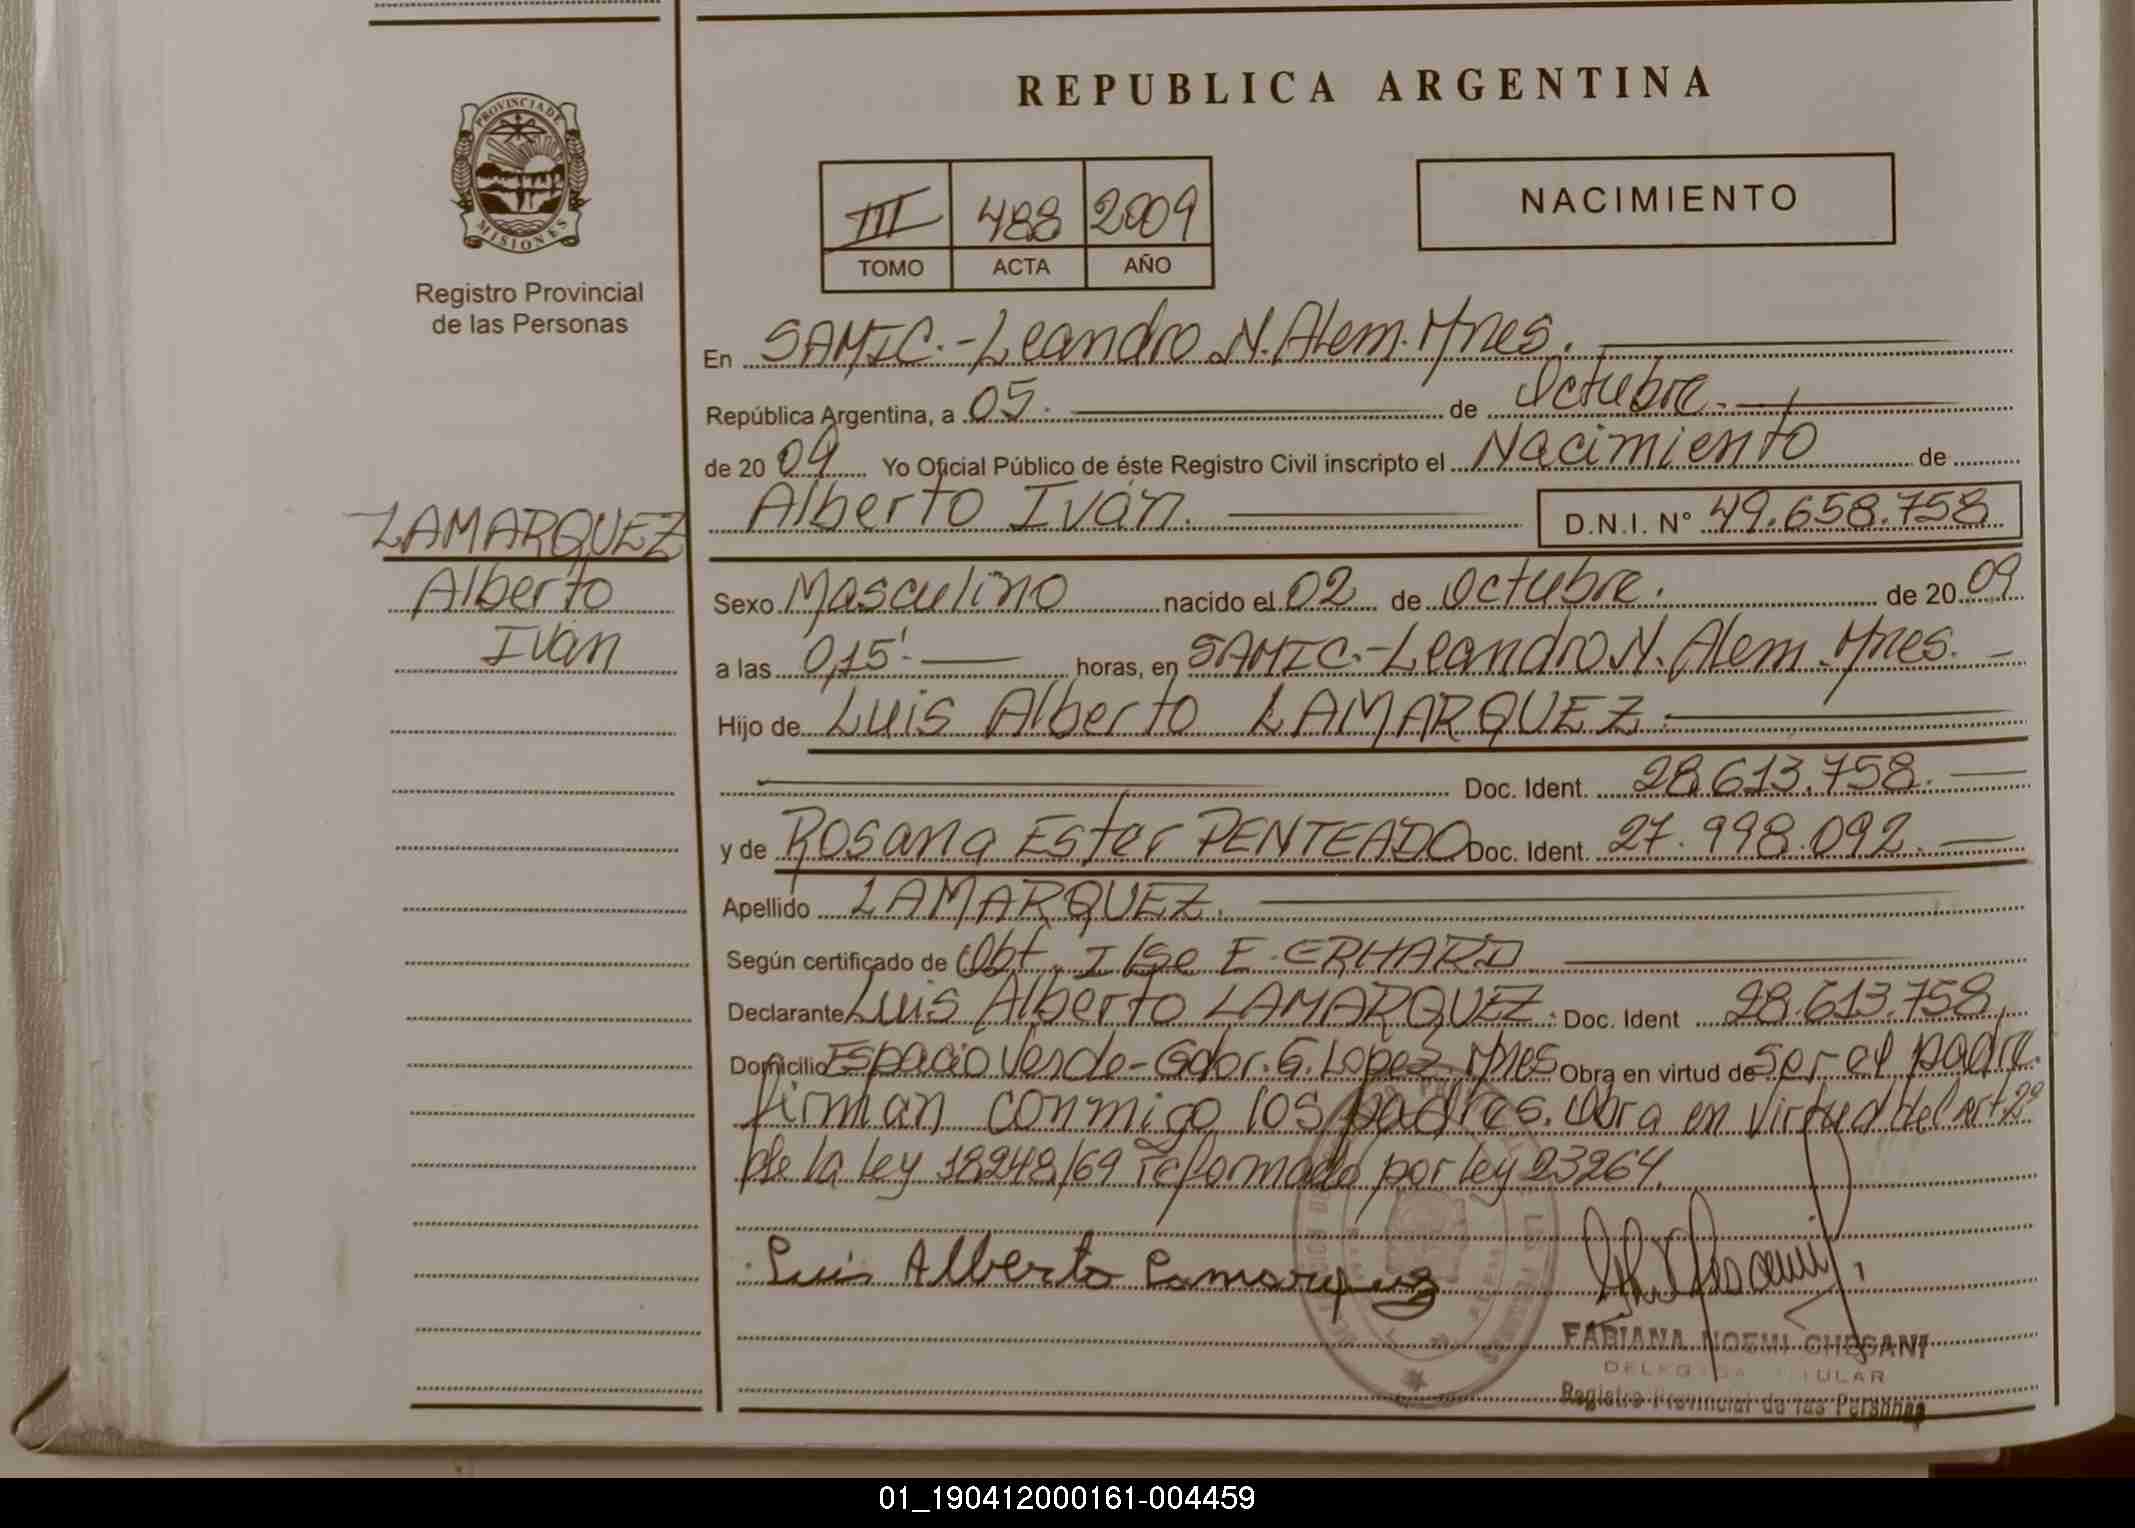 REPUBLICA ARGENTINA
PROVINCIA DE
MISIONES
Registro Provincial
de las Personas
III 488 2009
TOMO ACTA AÑO
NACIMIENTO
En SAMIC.-Leandro N. Alem. Mnes.
República Argentina, a 05. de Octubre.
de 20 09 Yo Oficial Público de éste Registro Civil inscripto el Nacimiento de
LAMARQUEZ
Alberto
Iván
Alberto Iván. D.N.I. N° 49.658.758
Sexo Masculino nacido el 02 de Octubre. de 20 09
a las 0,15' horas, en SAMIC.-Leandro N. Alem. Mnes.
Hijo de Luis Alberto LAMARQUEZ.
Doc. Ident. 28.613.758.
y de Rosana Ester PENTEADO Doc. Ident. 27.998.092.
Apellido LAMARQUEZ.
Según certificado de Obt. Ilse E. ERHARD
Declarante Luis Alberto LAMARQUEZ. Doc. Ident 28.613.758,
Domicilio Espacio Verde-Gdor. G. Lopez. Mnes Obra en virtud de ser el padre.
firman conmigo los padres. Obra en virtud del art. 2º
de la ley 18248/69 reformado por ley 23264.
Luis Alberto Lamarquez
FABIANA NOEMI CHESANI
DELEGADA TITULAR
Registro Provincial de las Personas
01_190412000161-004459